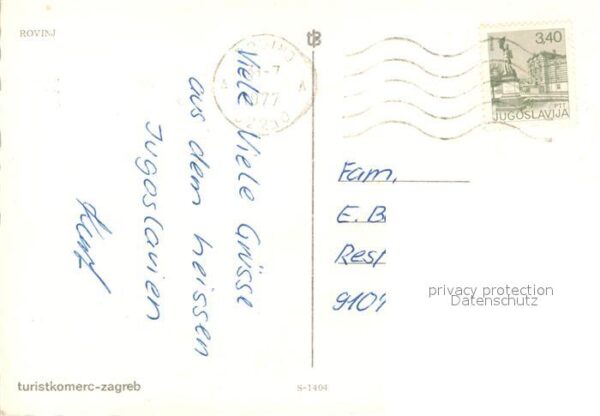 ROVINJ
Viele Viele Grüsse
aus dem heissen
Jugoslavien
3,40
PTT
JUGOSLAVIJA
Fam.
E. B
Rest
910
privacy protection
Datenschutz
turistkomerc-zagreb
S-1404